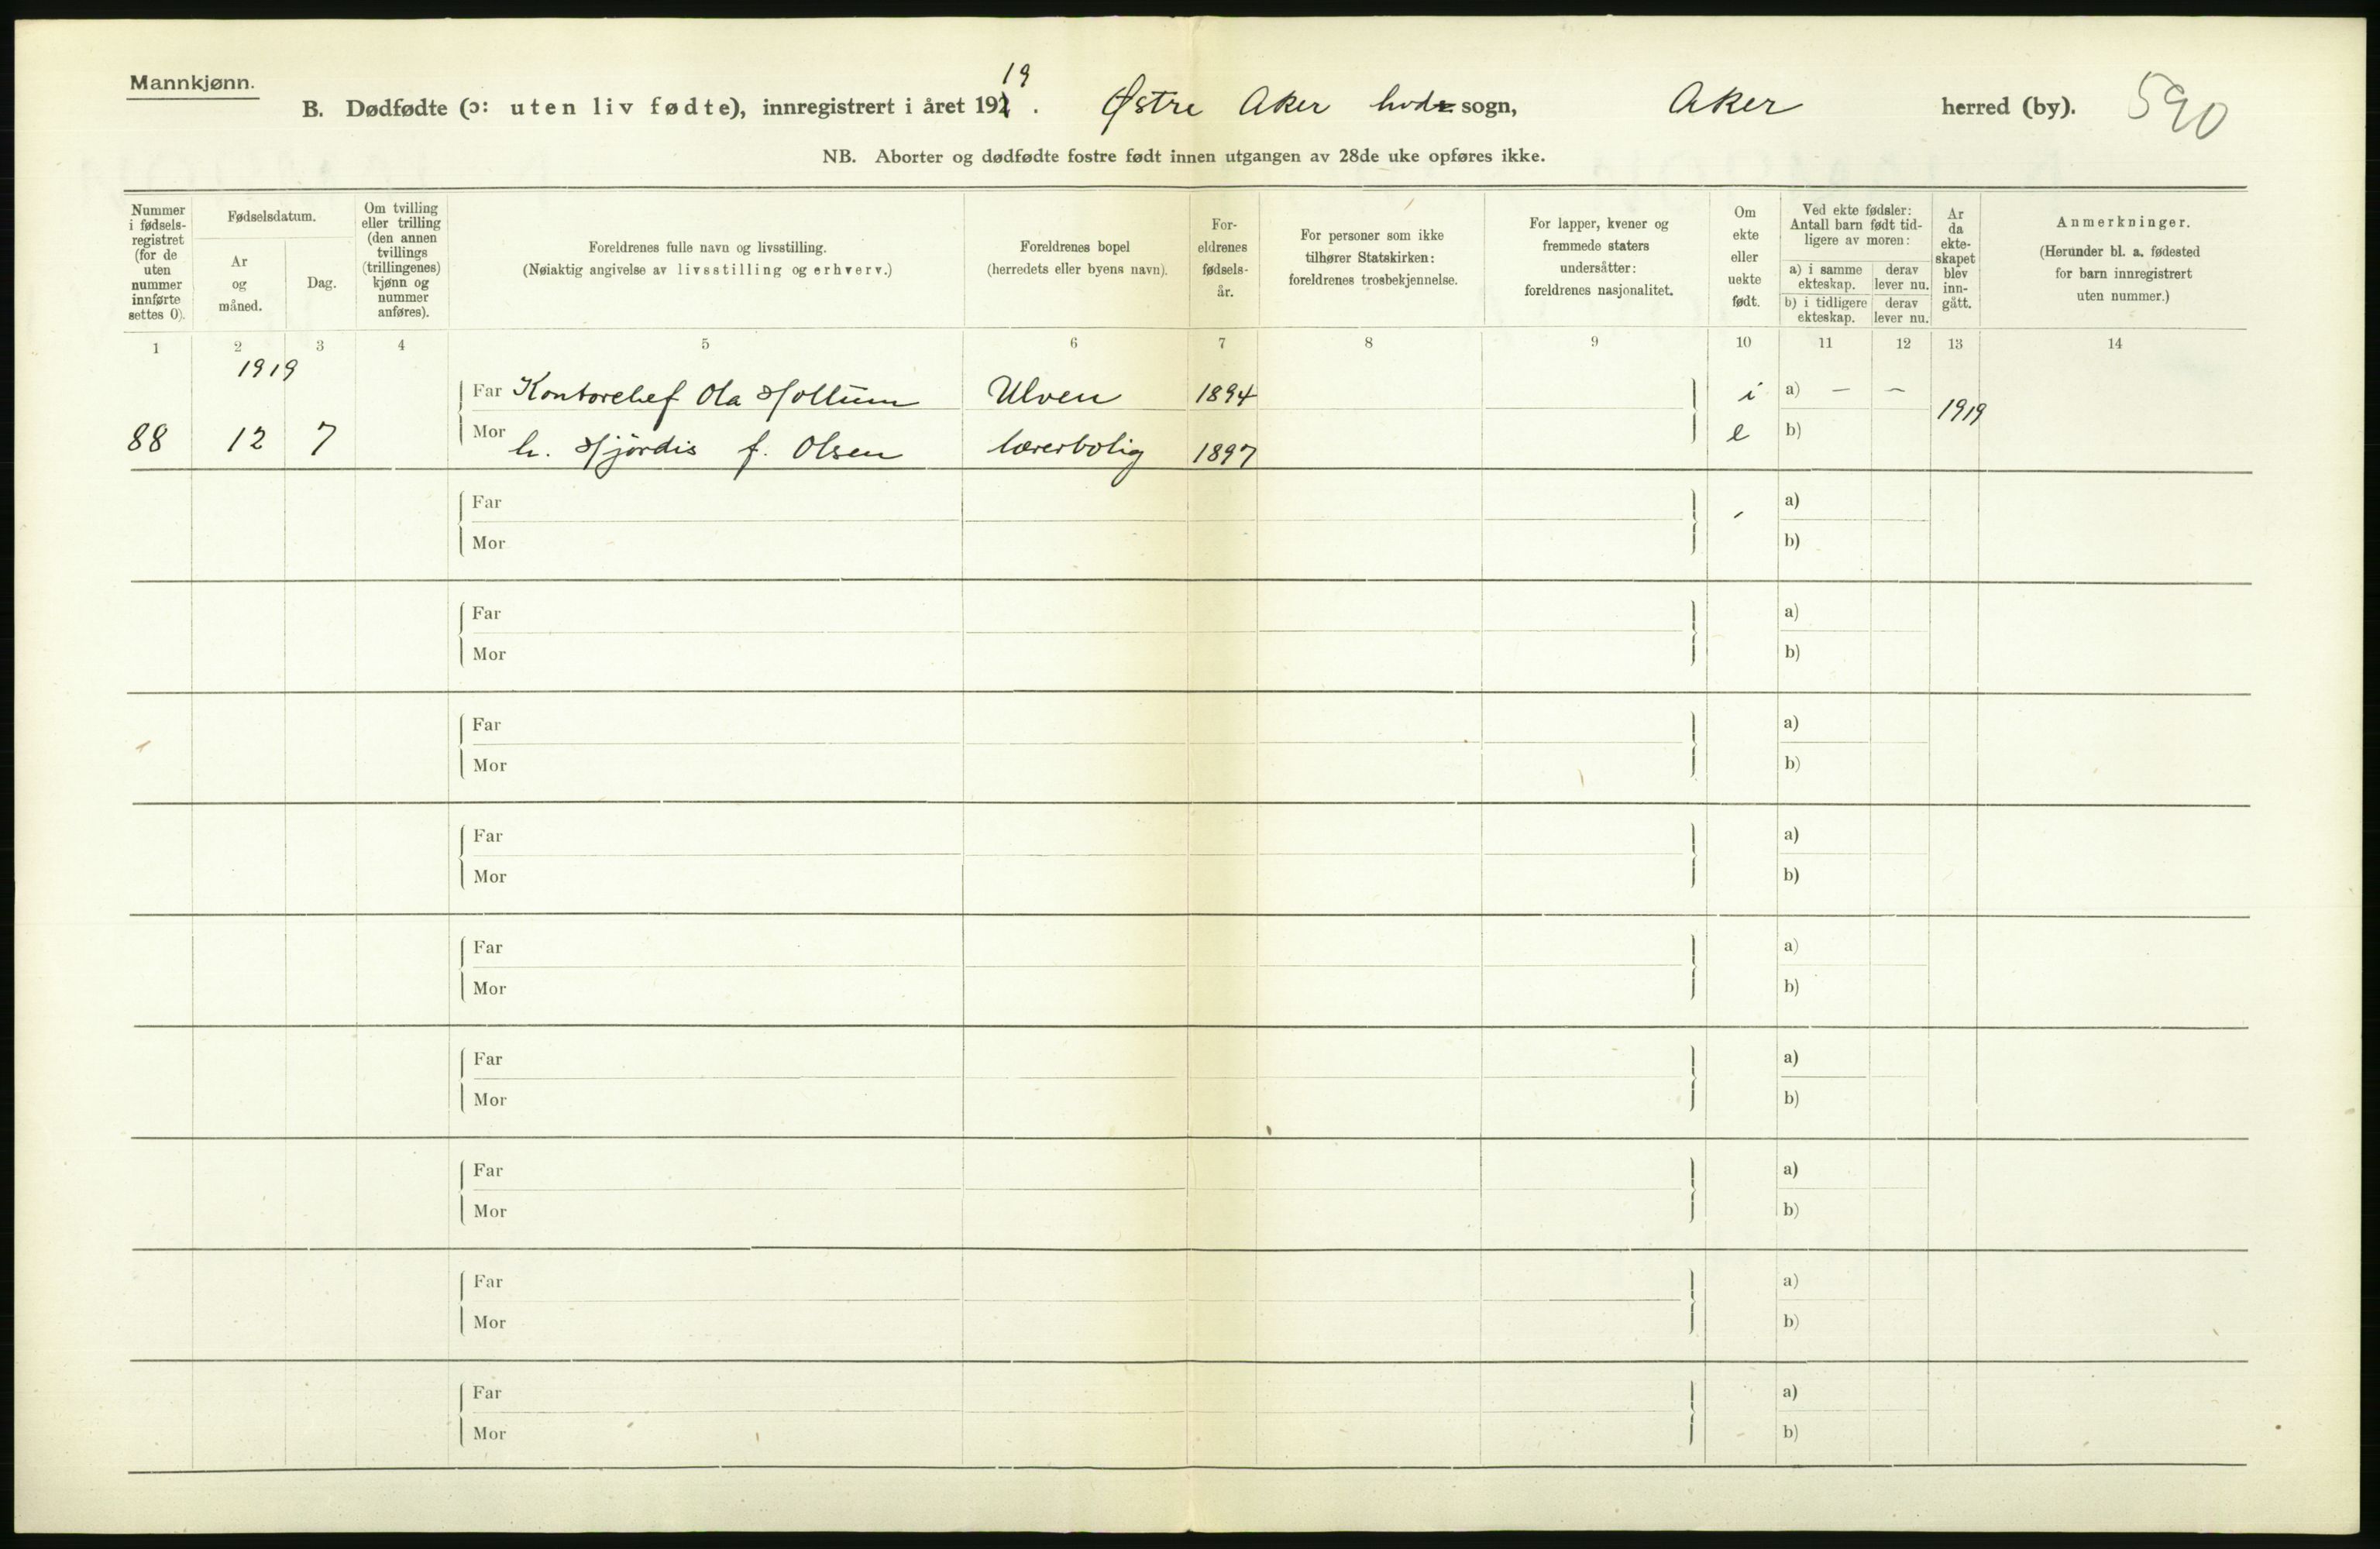 Mannkjønn.
19
B. Dødfødte (ɔ: uten liv fødte), innregistrert i året 192 . Østre Aker hvd sogn, Aker herred (by). 590
NB. Aborter og dødfødte fostre født innen utgangen av 28de uke opføres ikke.
Nummer i fødsels-registret (for de uten nummer innførte settes 0).
Fødselsdatum.
Ar og måned.
Dag.
Om tvilling eller trilling (den annen tvillings (trillingenes) kjønn og nummer anføres).
Foreldrenes fulle navn og livsstilling.
(Nøiaktig angivelse av livsstilling og erhverv.)
Foreldrenes bopel
(herredets eller byens navn).
For-eldrenes fødsels-år.
For personer som ikke tilhører Statskirken: foreldrenes trosbekjennelse.
For lapper, kvener og fremmede staters undersåtter: foreldrenes nasjonalitet.
Om ekte eller uekte født.
Ved ekte fødsler: Antall barn født tid-ligere av moren:
a) i samme ekteskap. derav lever nu.
b) i tidligere ekteskap. derav lever nu.
Ar da ekte-skapet blev inn-gått.
Anmerkninger.
(Herunder bl. a. fødested for barn innregistrert uten nummer.)
1 2 3 4 5 6 7 8 9 10 11 12 13 14
1919
Far Kontorchef Ola Hollum Ulven 1894 i a) — — 1919
88 12 7 Mor h. Hjördis f. Olsen lærerbolig 1897 e b)
Far a)
Mor b)
Far a)
Mor b)
Far a)
Mor b)
Far a)
Mor b)
Far a)
Mor b)
Far a)
Mor b)
Far a)
Mor b)
Far a)
Mor b)
Far a)
Mor b)